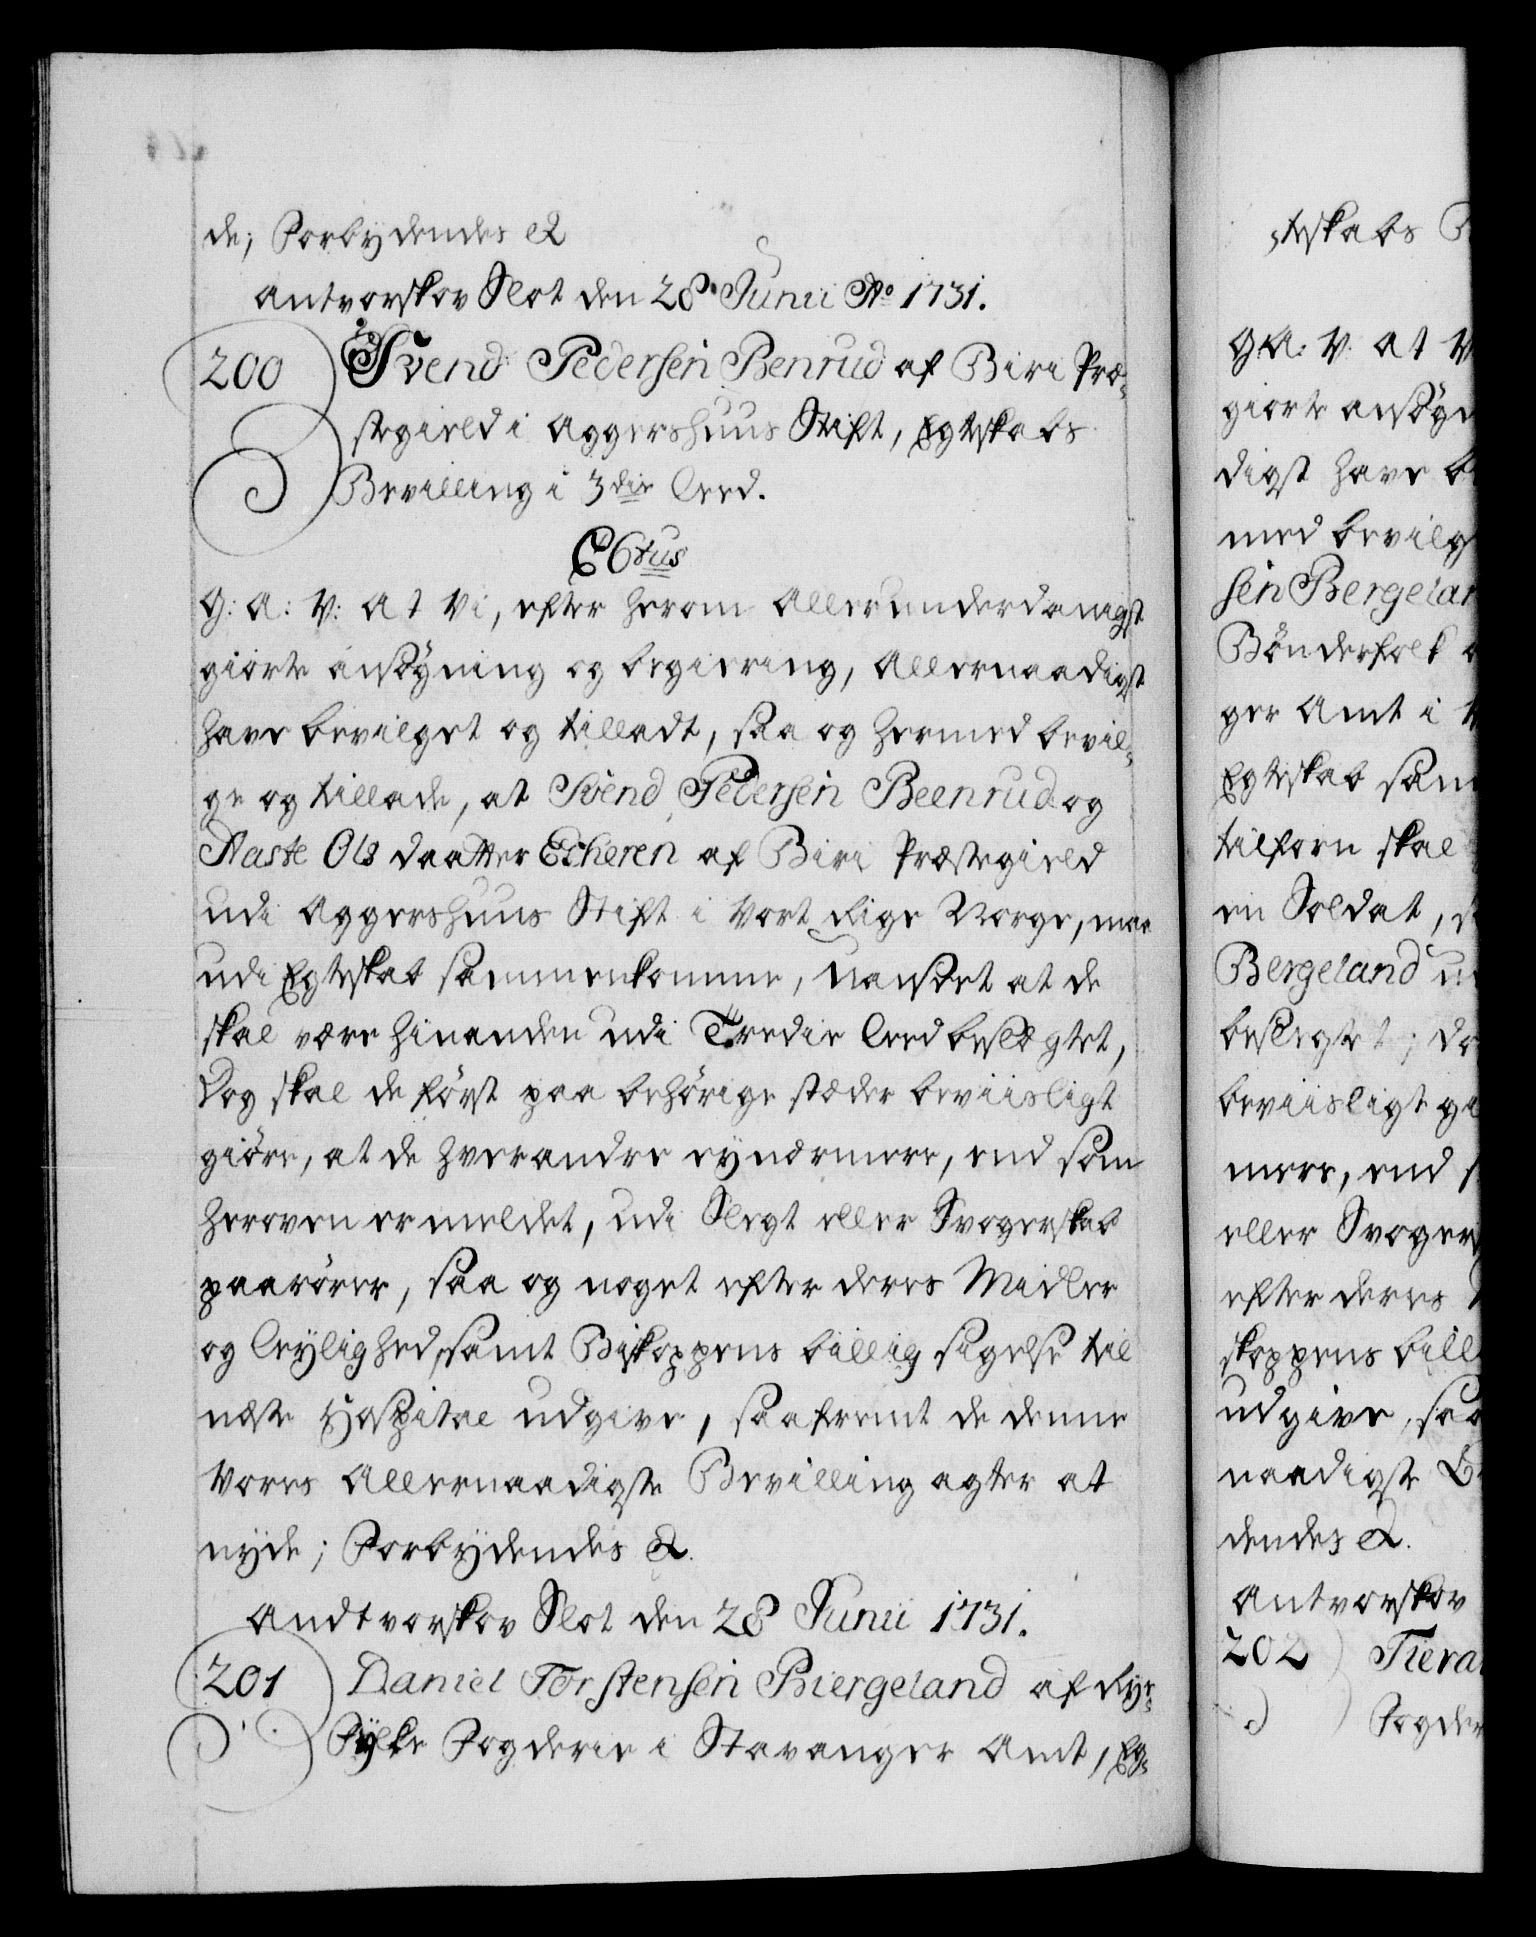 de; Forbydendes &
Antvorskov Slot den 28. Junii Ao 1731.
200 Svend Pedersen Benrud af Biri Præ-
stegield i Aggershuus Stift, Egteskabs
Bevilling i 3die Leed.
C6tus
G: A: V: At Vi, efter herom Allerunderdanigst
giorte ansögning og begiering, Allernaadigst
have bevilget og tilladt, saa og hermed bevil-
ge og tillade, at Svend Pedersen Beenrud og
Aaste Ols daatter Echeren af Biri Præstegield
udi Aggershuus Stift i Vort Rige Norge, maa
udi Egteskab sammenkomme, Uanseet at de
skal være hinanden udi Tredie Leed beslægtet,
Dog skal de först paa behörige stæder beviisligt
giöre, at de hverandre ey nærmere, end som
heroven er meldet, udi Slegt eller Svogerskab
paarörer, saa og noget efter deres Midler
og Leylighed, samt Biskoppens billig sigelse til
næste Hospital udgive, saafremt de denne
Vores Allernaadigste Bevilling agter at
nyde; Forbydendes &.
Andtvorskov Slot den 28 Junii 1731.
201 Daniel Torstensen Biergeland af Rye-
fylke Fogderie i Stavanger Amt, Eg-
teskabs
G A: V: At
giorte ansögn
digst have be
med bevilg
sen Bergelan
Bönderfolk
ger Amt i
Egteskab sam
tilforn skal
en Soldat,
Bergeland
beslegtet; do
beviisligt gi
mere, end
eller Svogers
efter deres
skoppens bill
udgive, saa
naadigste
dendes &.
Antvorskov
202
Fogder